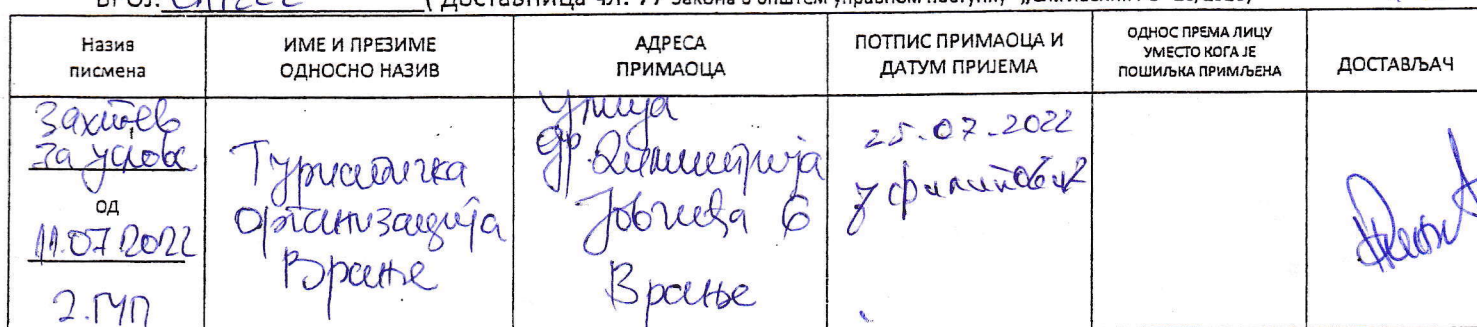 БРОЈ: ( Доставница чл. 77 Закона о општем управном поступку
Назив
писмена
ИМЕ И ПРЕЗИМЕ
ОДНОСНО НАЗИВ
АДРЕСА
ПРИМАОЦА
ПОТПИС ПРИМАОЦА И
ДАТУМ ПРИЈЕМА
ОДНОС ПРЕМА ЛИЦУ
УМЕСТО КОГА ЈЕ
ПОШИЉКА ПРИМЉЕНА
ДОСТАВЉАЧ
Захтев
за услове
од
11.07.2022
2.ГУП
Туристичка
организација
Врање
улица
др Димитрија
Јовчића 6
Врање
25.07.2022
Филиповић